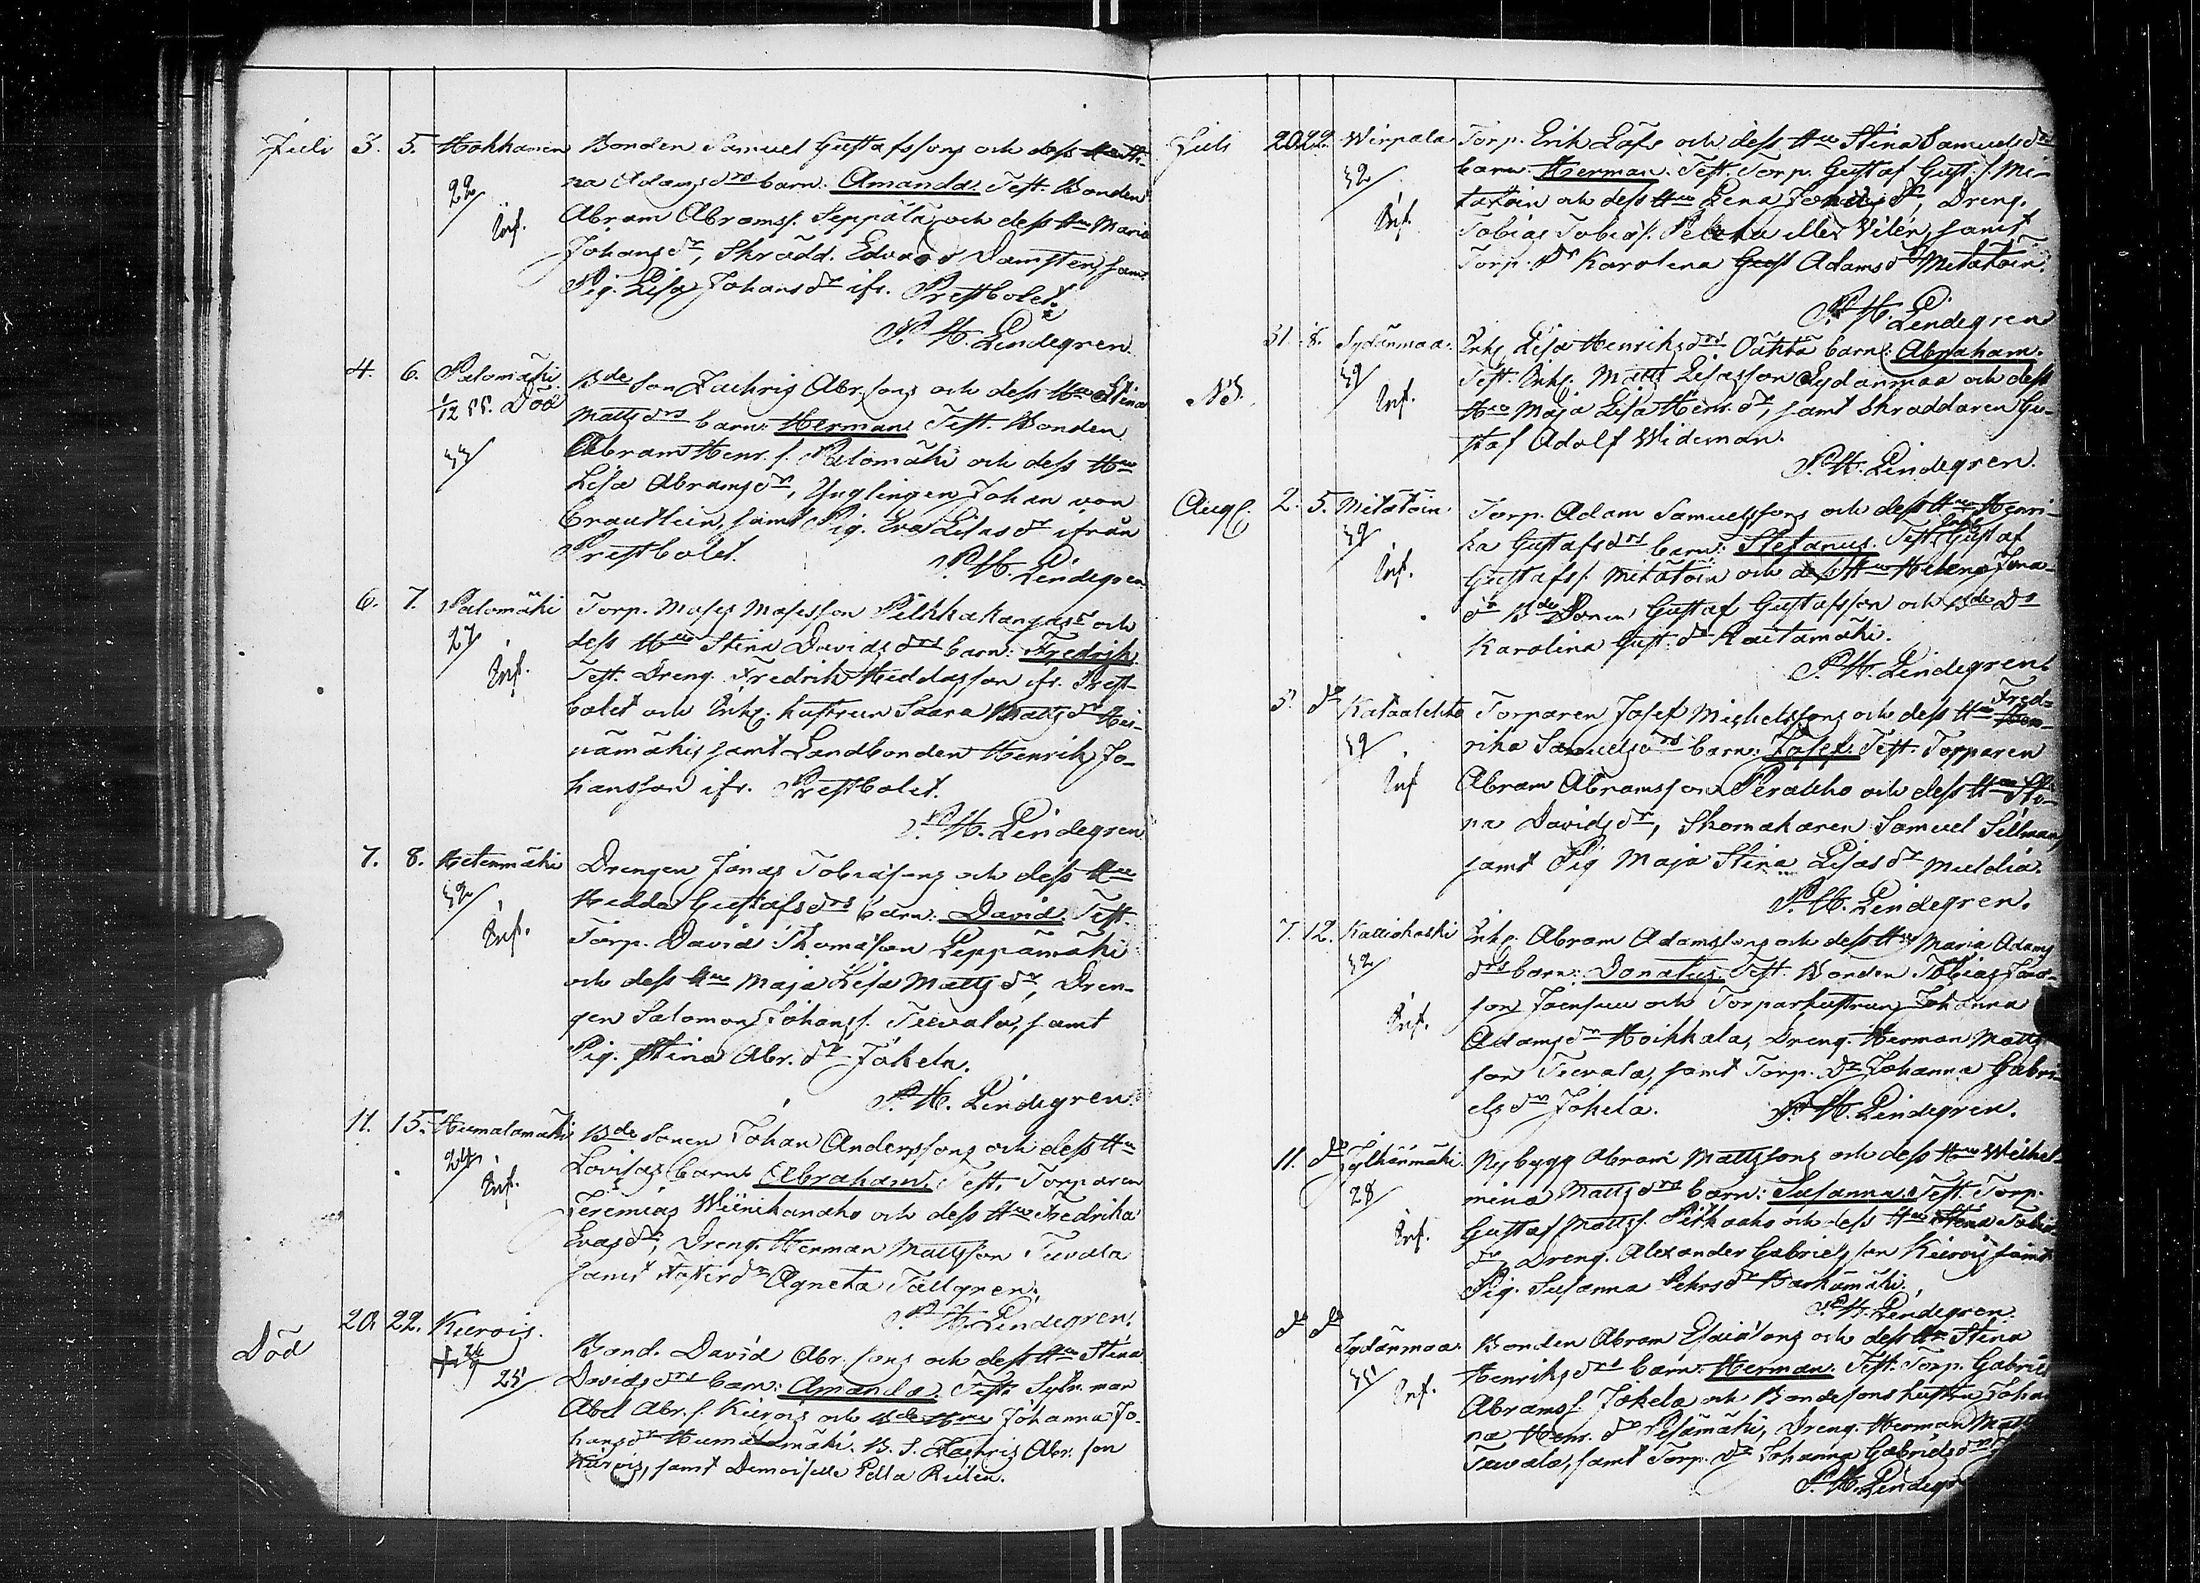 Juli 3. 5. Hokkanen Bonden Samuel Gustafssons och dess Hu
na Adamsdrs barn: Amanda. Test. Bonden
22 Abram Abramss. Seppälä och dess Hu Maria
Inf. Johansdr, Skrädd. Edvard Damsten, samt
Pig. Lisa Johansdr ifr. Prestbolet.
P. H. Lindegren.
4. 6. Palomäki Bde Son Zachris Abr.sons och dess Hu Stina
1/12 55. Död Mattsdrs barn: Herman. Test. Bonden
33 Abram Henr.s. Palomäki och dess Hu
Lisa Abramsdr, Ynglingen Johan von
samt Pig. Eva Lisasdr ifrån
Prestbolet. P. H. Lindegren
6. 7. Palomäki Torp. Moses Mosesson Pitkäkangas och
27 dess Hu Stina Davidsdrs barn: Fredrik.
Inf. Test. Dreng. Fredrik Heddasson ifr. Prest-
bolet och Inh. hustrun Saara Mattsdr Hei-
nämäki, samt Landbonden Henrik Jo-
hansson ifr. Prestbolet.
P. H. Lindegren
7. 8. Ketenmäki Drengen Jonas Tobiassons och dess Hu
32 Hedda Gustafsdrs barn: David. Test.
Inf. Torp. David Thomasson Leppämäki
och dess Hu Maja Lisa Mattsdr, Dren-
gen Salomon Johanss. Teevala, samt
Pig. Stina Abr.dr Jokela.
P. H. Lindegren.
11. 15. Humalamäki Bde Sonen Johan Anderssons och dess Hu
24 Lovisas barn: Abraham. Test. Torparen
Inf. Jeremias Wiinikanaho och dess Hu Fredrika
Evasdr, Dreng. Herman Mattsson Teevala
samt dr Agneta Tallgren.
P. H. Lindegren.
Död 20. 22. Kierois. Bond. David Abr.sons och dess Hu Stina
25 Davidsdrs barn: Amanda. Test. Sytn.man
Abel Abr.s. Kierois och Bde Hu Johanna Jo-
hansdr Humalamäki. B. S. Zachris Abr.son
Kierois, samt Demoiselle Edla Rulen.
Juli 20. 22. Wirpala Torp. Erik Löfs och dess Hu Stina Samuelsdrs
32 barn: Herman. Test. Torp. Gustaf Gust.s. Mi-
tätöin och dess Hu Lena Jonasdr, Dreng.
Inf. Tobias Tobias.s. Peltola eller Vilén, samt
Torp. Dr Karolina Adamsdr Mitätöin.
P. H. Lindegren
31. 8. Sydänmaa. Inh. Lisa Henriksdrs Oähtä barn: Abraham.
32 Test. Inh. Matts Lisasson Sydänmaa och dess
Nöd. Inf. Hu Maja Lisa Henr.dr, samt Skräddaren Gu-
staf Adolf Wideman.
P. H. Lindegren.
Aug. 2. 5. Mitätöin Torp. Adam Samuelssons och dess Hu Henri-
32 ka Gustafsdrs barn: Stefanus. Test. Torp. Gustaf
Inf. Gustafs.s. Mitätöin och dess Hu Helena Jona-
dr Bde Sonen Gustaf Gustafsson och Bde Dr
Karolina Gust.dr Rautamäki.
P. H. Lindegren.
5. do Kataalehto Torparen Josef Michelssons och dess Hu Fred-
32 rika Samuelsdrs barn: Josef. Test. Torparen
Inf Abram Abramsson Peraaho och dess Hu Sti-
na Davidsdr, Skomakaren Samuel Sillman,
samt Pig Maja Stina Lisasdr Muldia.
P. H. Lindegren.
7. 12. Kalliokoski Inh. Abram Adamssons och dess Hu Maria Adams
32 drs barn: Donatus. Test. Bonden Tobias
Inf. son Joensuu och Torparhustrun Johanna
Adamsdr Hoikkala, Dreng. Herman Matts-
son Teevala, samt Torp. Dr Johanna Gabri-
elsdr Jokela. P. H. Lindegren.
11. do Jylhänmäki. Nybygg Abram Mattssons och dess Hu Wilhel-
28 mina Mattsdrs barn: Susanna. Test. Torp.
Inf. Gustaf Mattss. Pitkäaho och dess Hu Stina Tobias
dr, Dreng. Alexander Gabrielsson Kierois, samt
Pig. Susanna Pehrsdr Karhumäki.
P. H. Lindegren.
do do Sydänmaa Bonden Abram Esaiassons och dess Hu Stina
Henriksdrs barn: Herman. Test. Torp. Gabriel
Inf. Abrams.s. Jokela och Bondesons hustrun Johan
na Henr.dr Pesämäki, Dreng. Herman Matts
Teevala, samt Torp. Dr Johanna Gabrielsdr
P. H. Lindegr